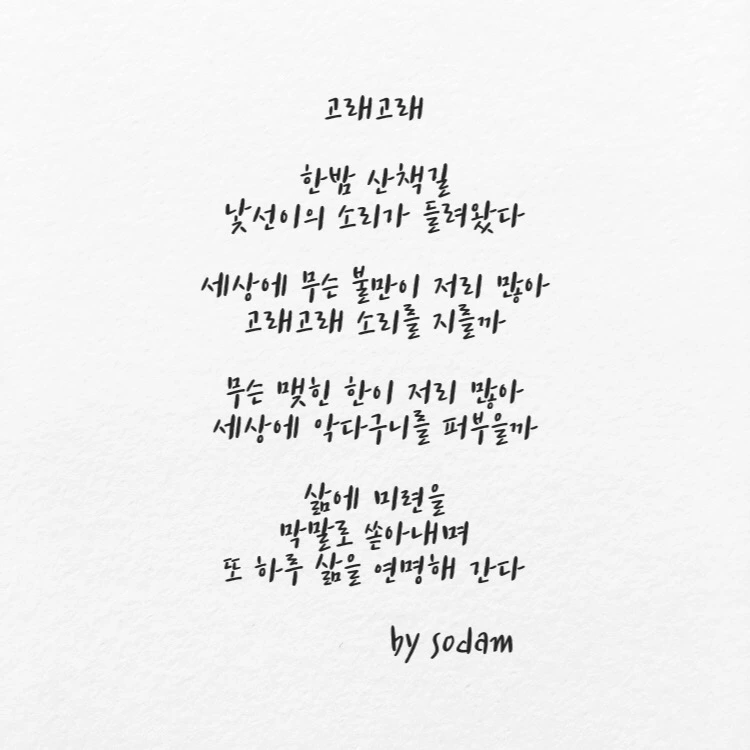 고래고래
한밤 산책길
낯선이의 소리가 들려왔다
세상에 무슨 불만이 저리 많아
고래고래 소리를 지를까
무슨 맺힌 한이 저리 많아
세상에 악다구니를 퍼부을까
삶에 미련을
막말로 쏟아내며
또 하루 삶을 연명해 간다
by sodam